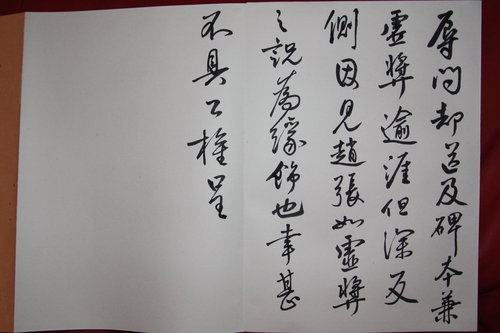 辱問却送及碑本兼
虛獎逾涯但深反
側因見趙張如虛獎
之説為緣飾也幸甚
不具公權呈